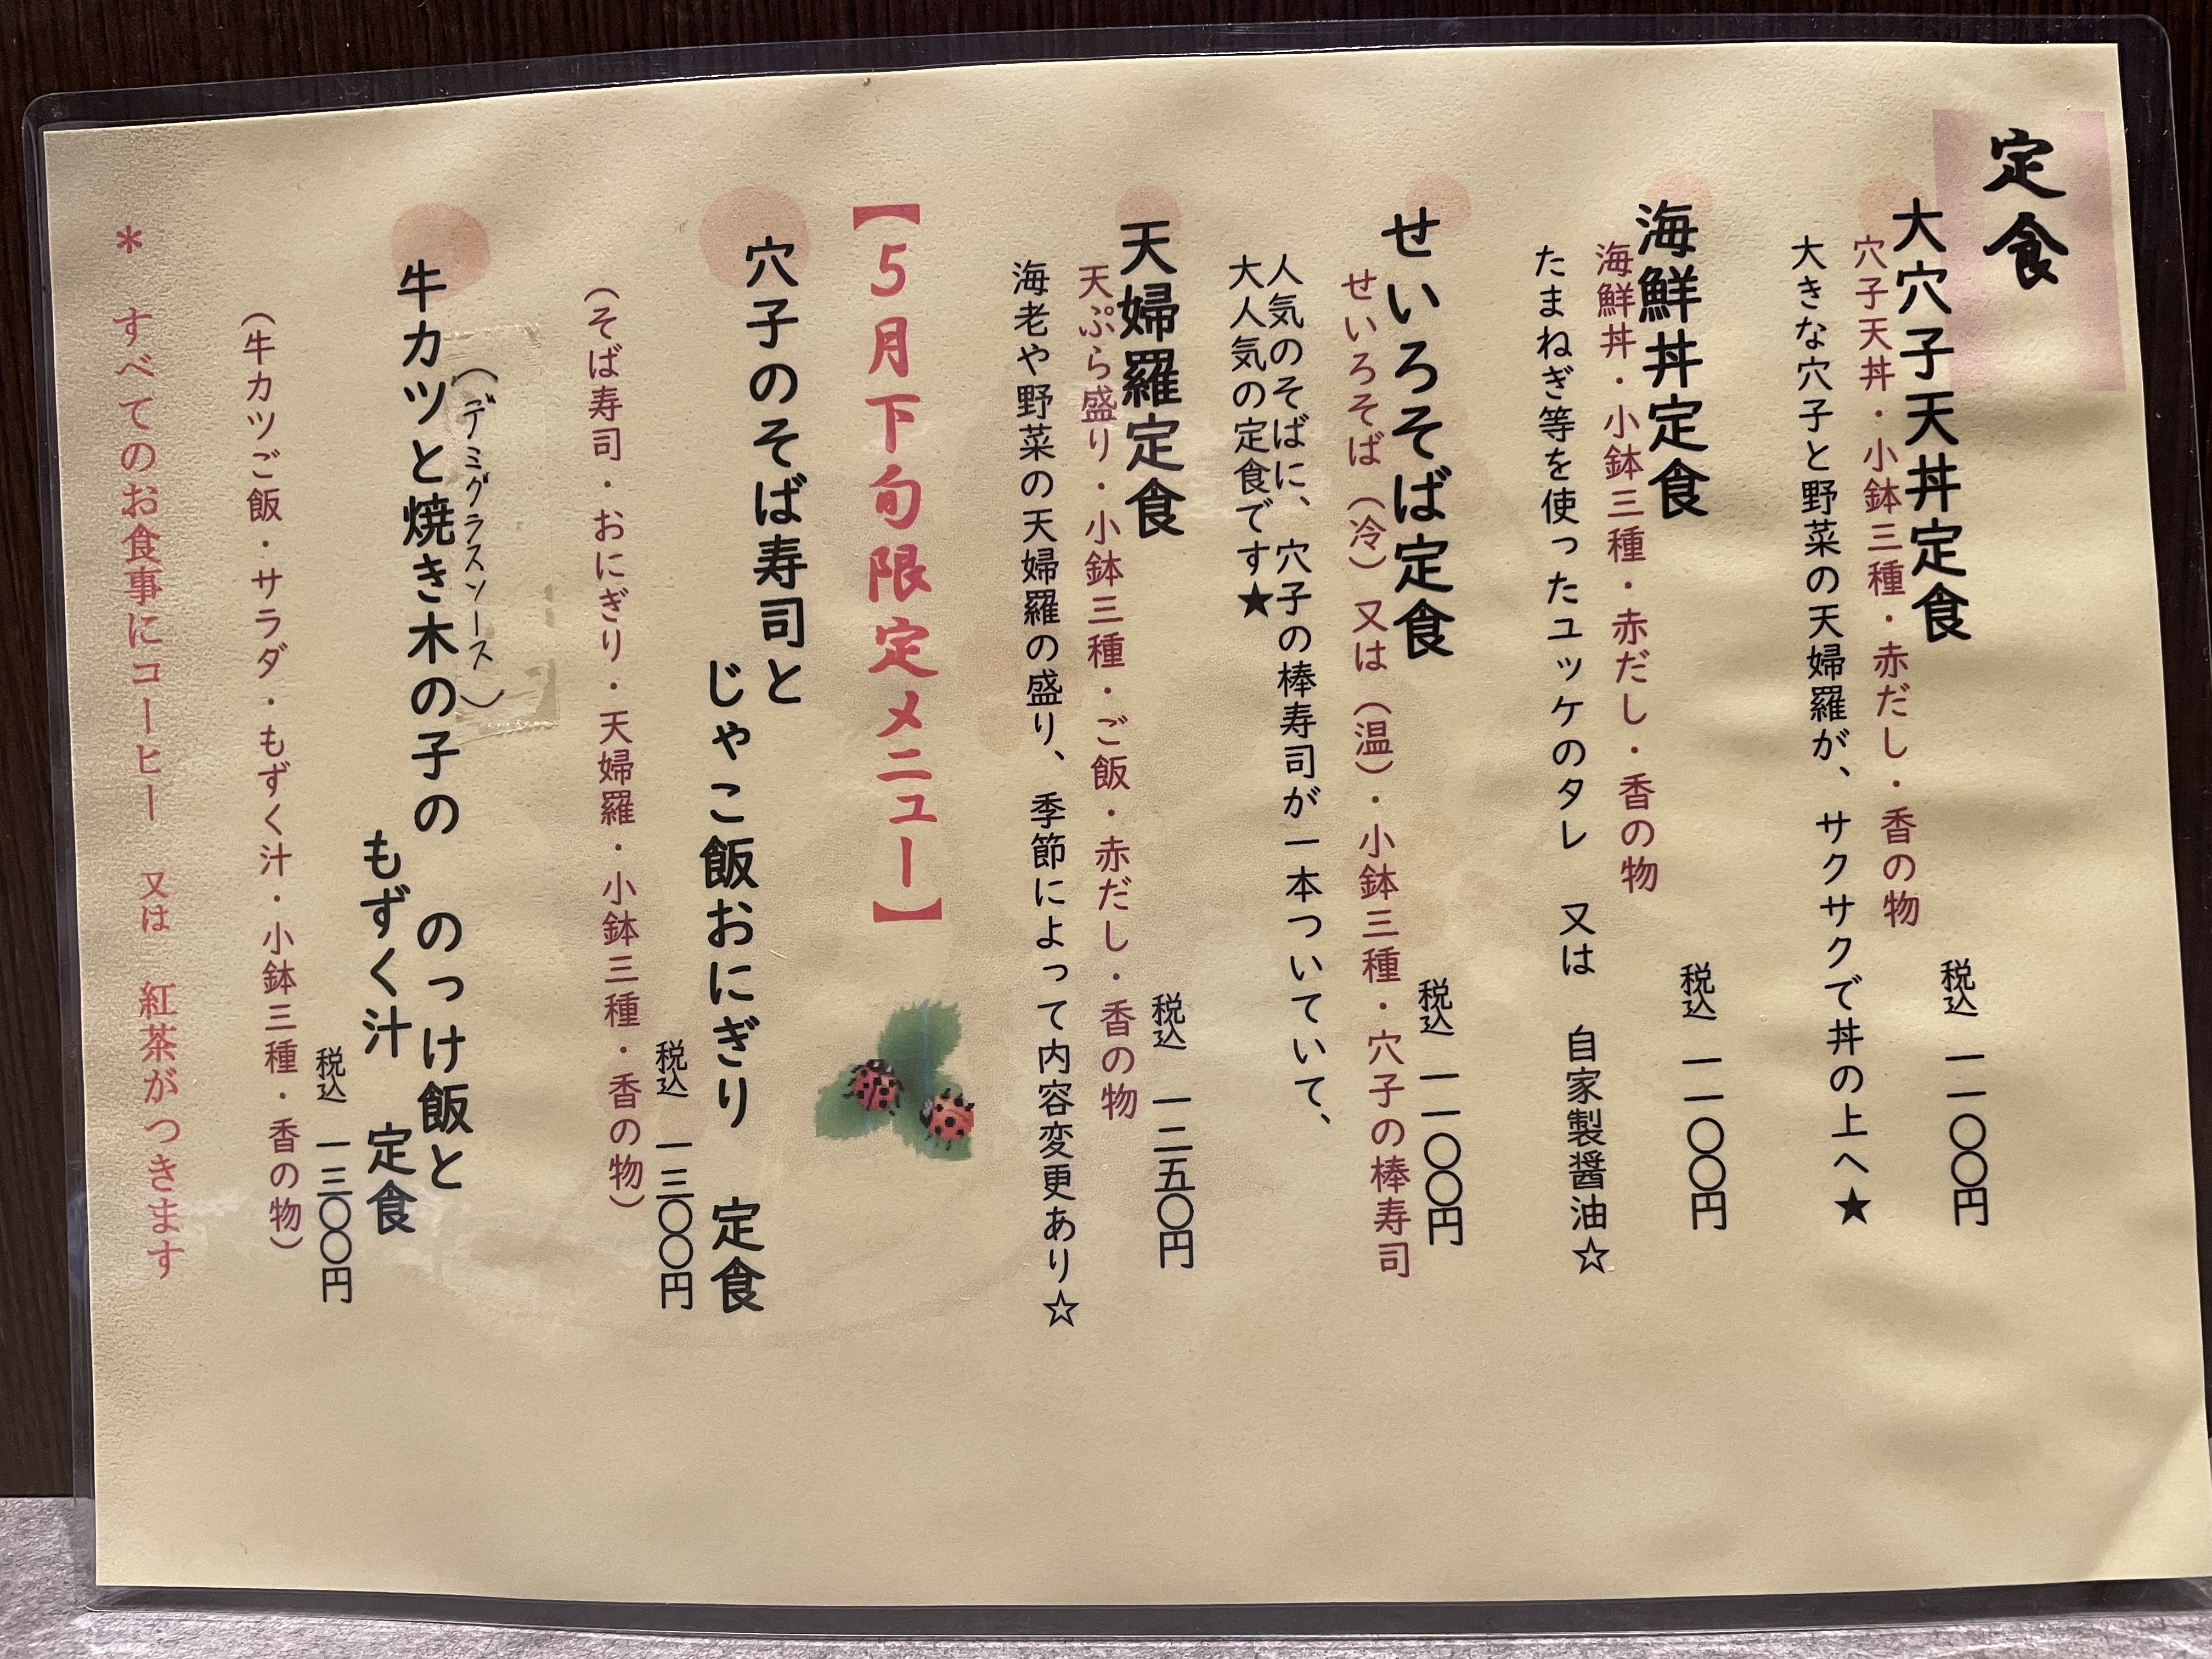 定食
大穴子天丼定食
穴子天丼・小鉢三種・赤だし・香の物
税込 一一〇〇円
大きな穴子と野菜の天婦羅が、サクサクで丼の上へ★
海鮮丼定食
海鮮丼・小鉢三種・赤だし・香の物
税込 一一〇〇円
たまねぎ等を使ったユッケのタレ 又は 自家製醤油☆
せいろそば定食
せいろそば(冷)又は(温)・小鉢三種・穴子の棒寿司
税込 一一〇〇円
人気のそばに、穴子の棒寿司が一本ついていて、
大人気の定食です★
天婦羅定食
天ぷら盛り・小鉢三種・ご飯・赤だし・香の物
税込 一二五〇円
海老や野菜の天婦羅の盛り、季節によって内容変更あり☆
【5月下旬限定メニュー】
穴子のそば寿司と
じゃこ飯おにぎり 定食
税込 一三〇〇円
(そば寿司・おにぎり・天婦羅・小鉢三種・香の物)
(デミグラスソース)
牛カツと焼き木の子の のっけ飯と
もずく汁 定食
税込 一三〇〇円
(牛カツご飯・サラダ・もずく汁・小鉢三種・香の物)
* すべてのお食事にコーヒー 又は 紅茶がつきます